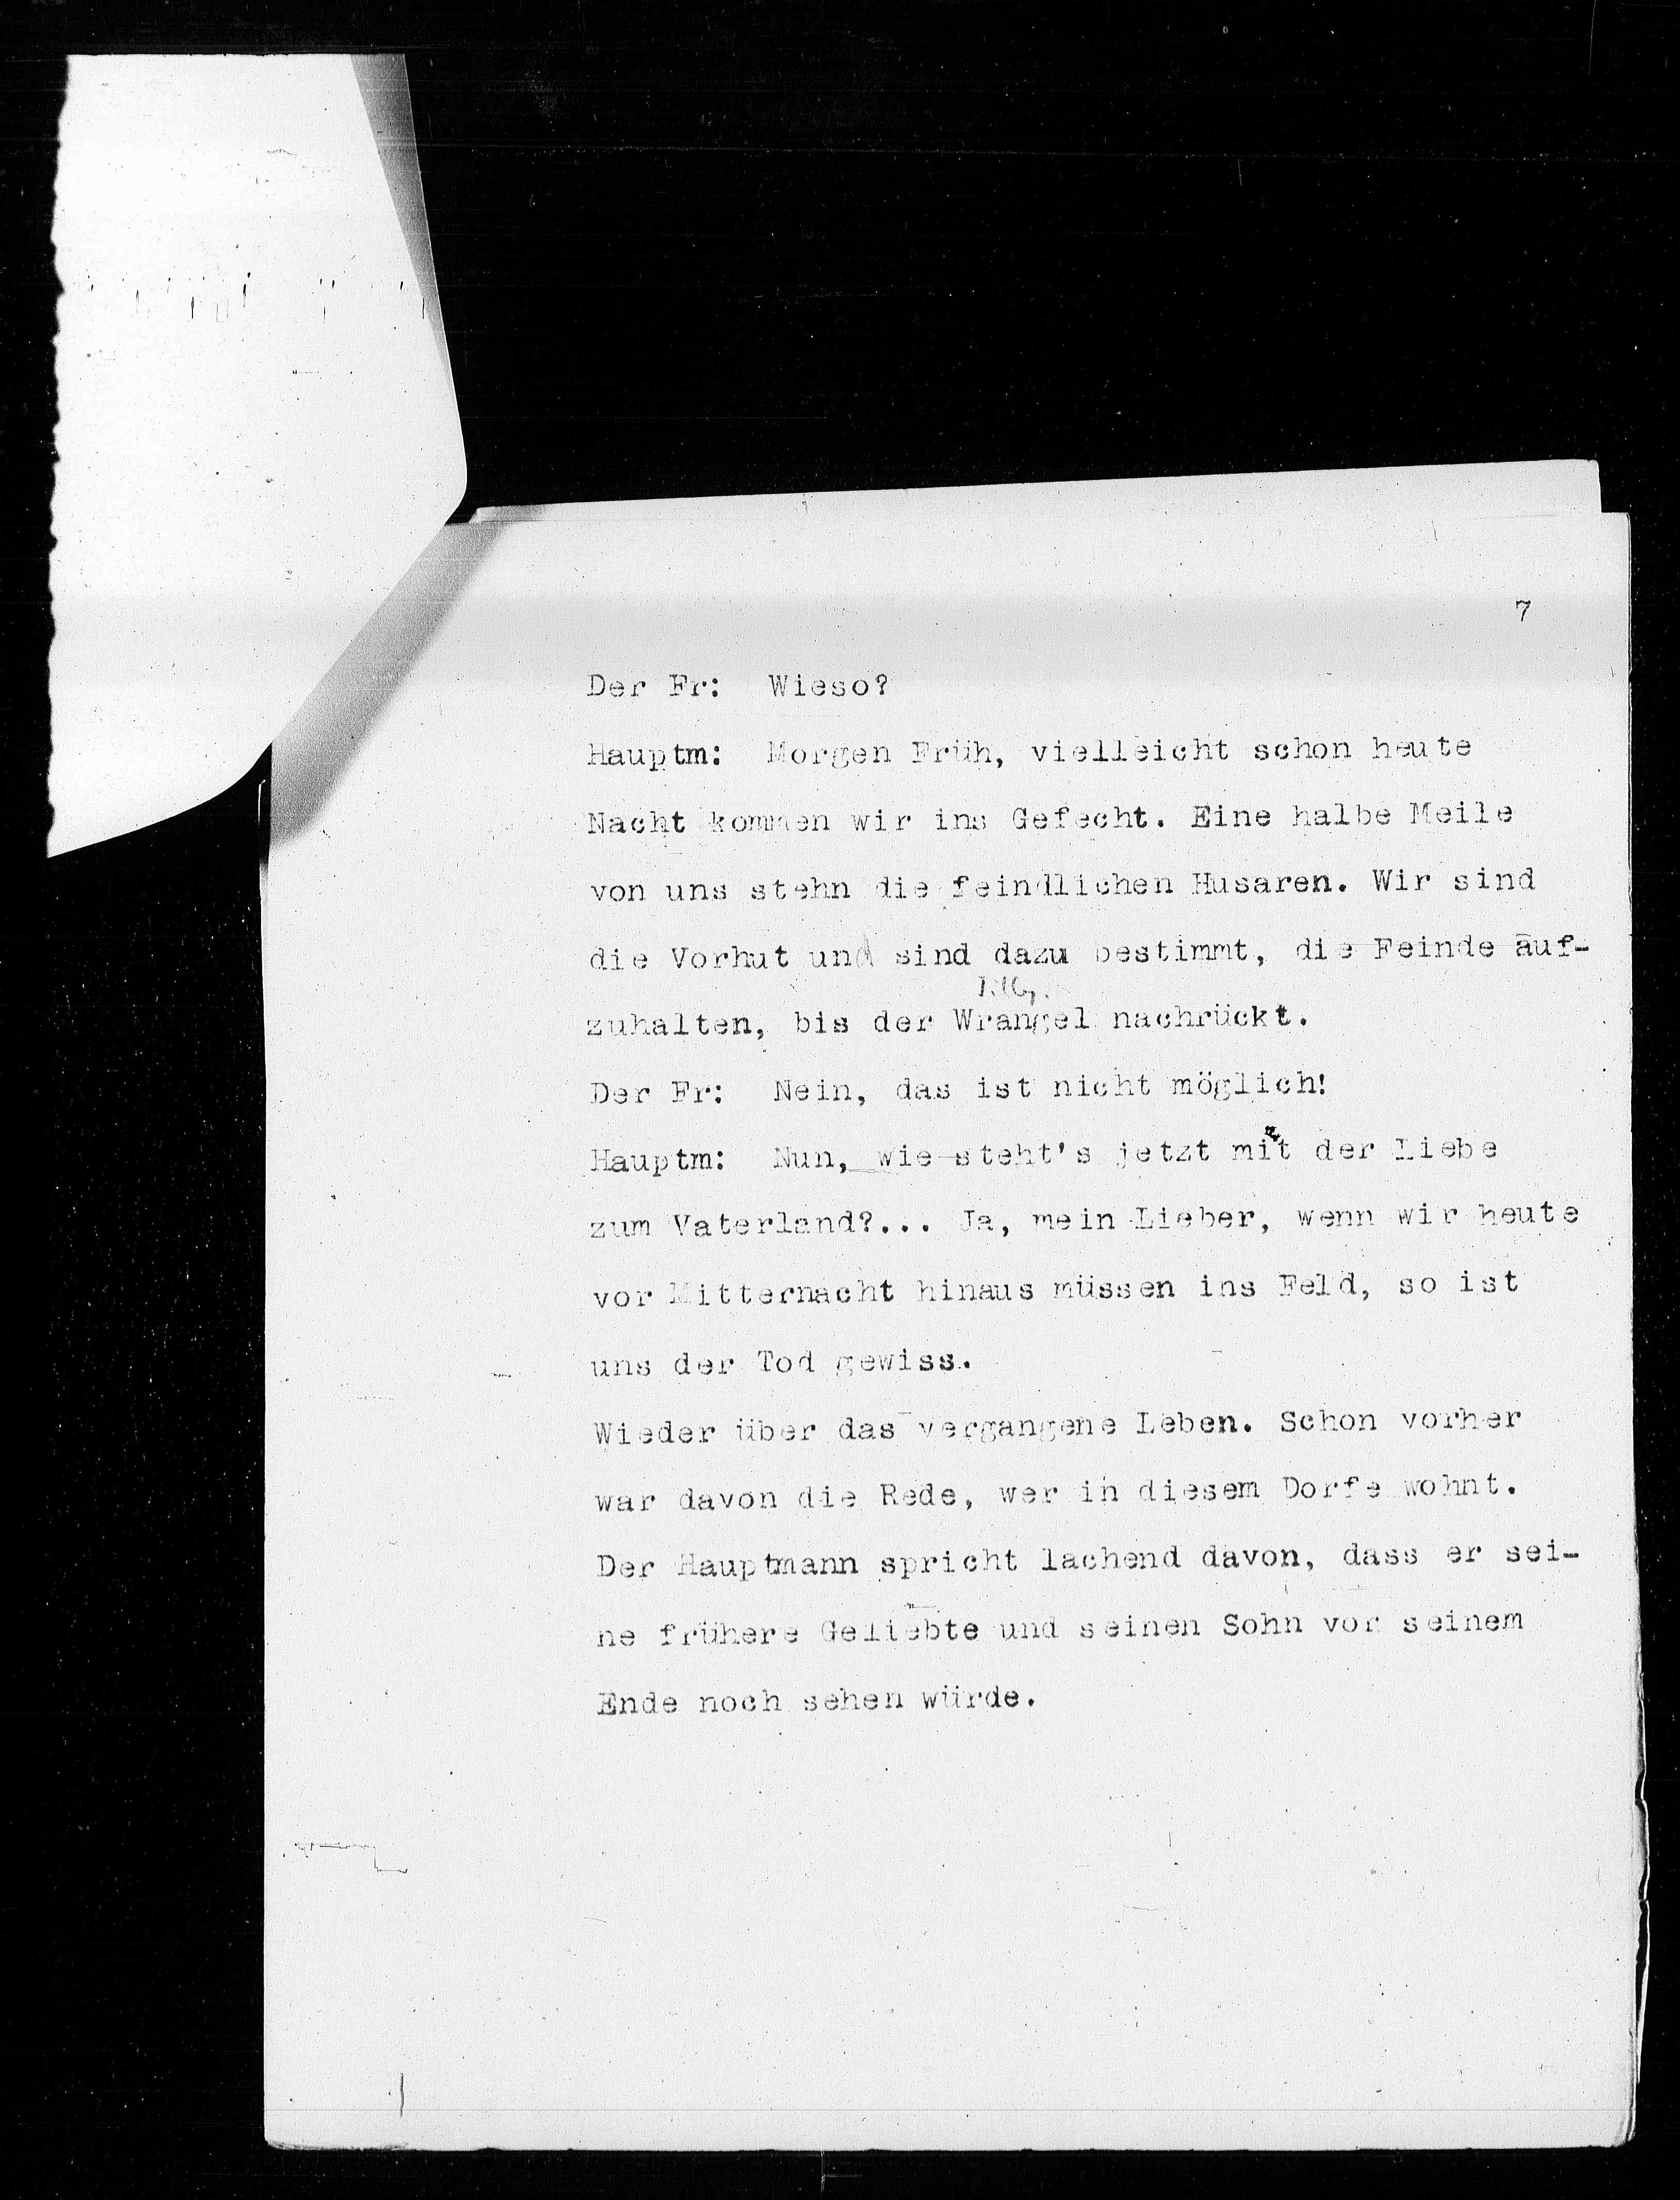 7
Der Fr: Wieso?
Hauptm: Morgen Früh, vielleicht schon heute
Nacht kommen wir ins Gefecht. Eine halbe Meile
von uns stehn die feindlichen Husaren. Wir sind
die Vorhut und sind dazu bestimmt, die Feinde auf-
Tilly.
zuhalten, bis der Wrangel nachrückt.
Der Fr: Nein, das ist nicht möglich!
Hauptm: Nun, wie steht's jetzt mit der Liebe
zum Vaterland?... Ja, mein Lieber, wenn wir heute
vor Mitternacht hinaus müssen ins Feld, so ist
uns der Tod gewiss.
Wieder über das vergangene Leben. Schon vorher
war davon die Rede, wer in diesem Dorfe wohnt.
Der Hauptmann spricht lachend davon, dass er sei-
ne frühere Geliebte und seinen Sohn vor seinem
Ende noch sehen würde.